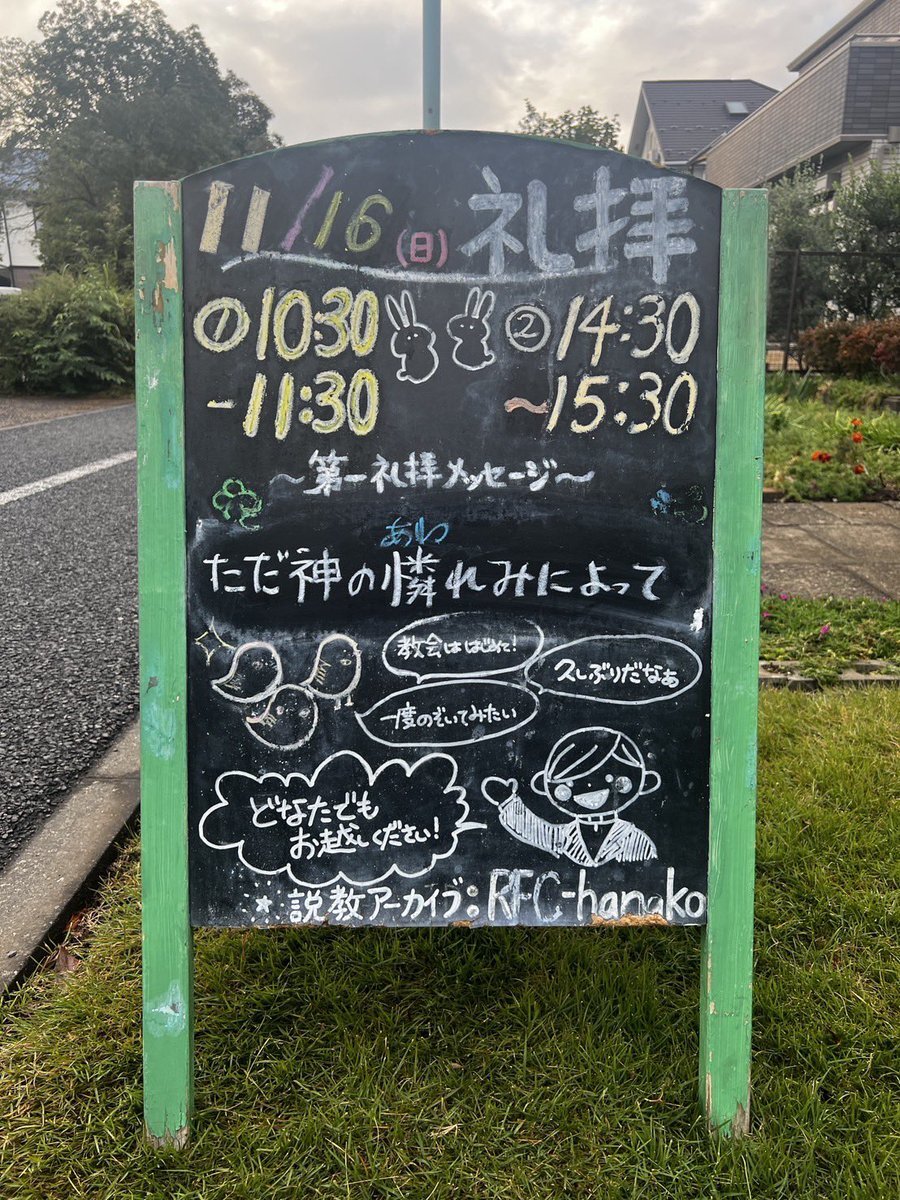 11/16(日) 礼拝
①10:30 ②14:30
-11:30 ~15:30
~第一礼拝メッセージ~
あわ
ただ神の憐れみによって
教会ははじめて!
久しぶりだなぁ
一度のぞいてみたい
どなたでも
お越しください!
説教アーカイブ:RFC-hanako